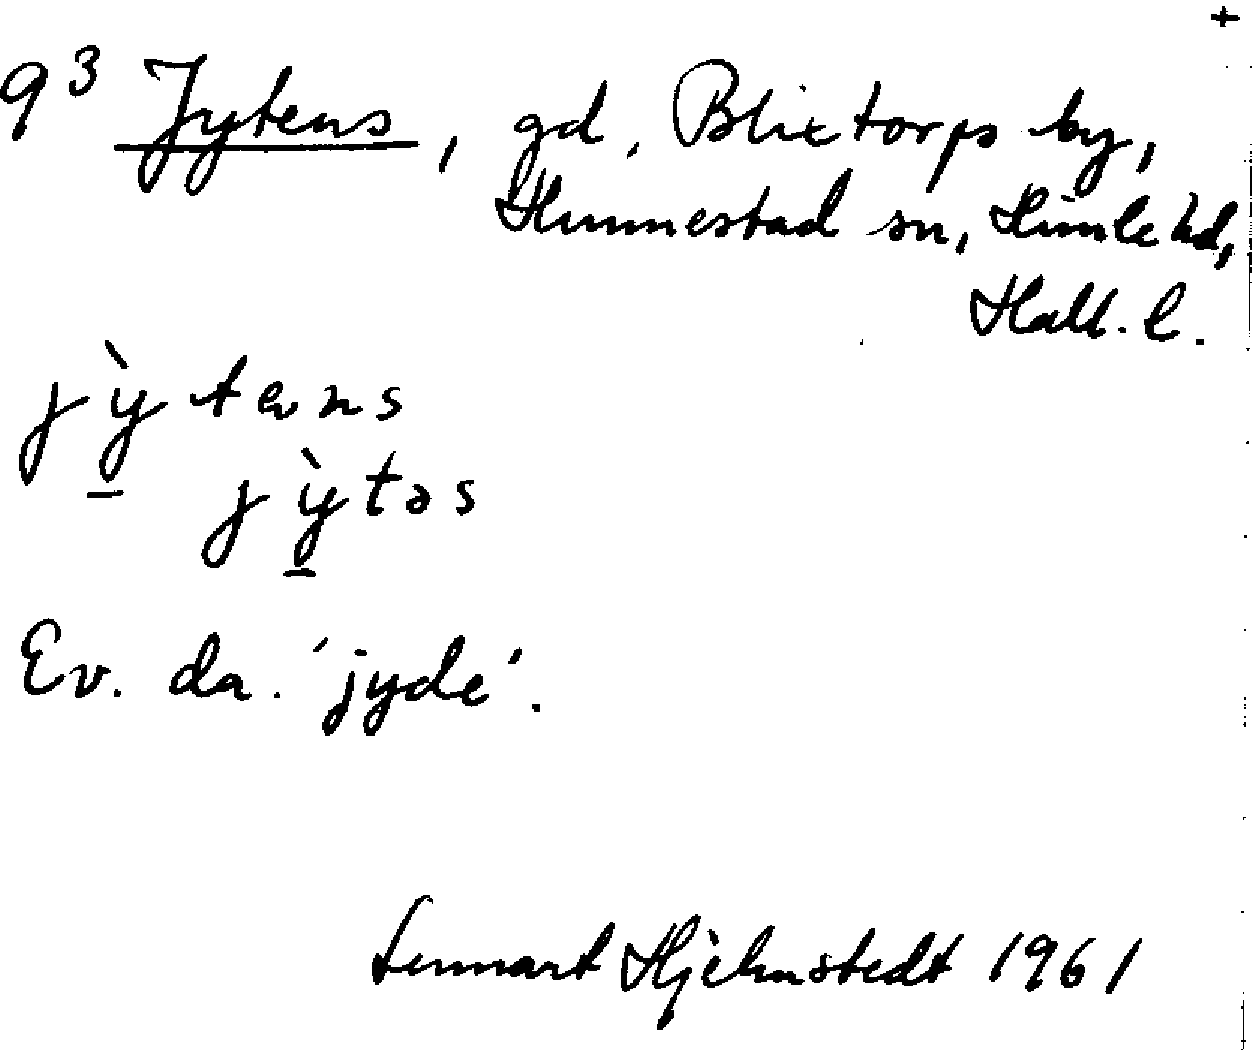 +
9³ Jytens, gd, Blixtorps by,
Hunnestad sn, Himle hd,
Hall. l.
jỳ̱tens
jỳ̱təs
Ev. da. 'jyde'.
Lennart Hjelmstedt 1961